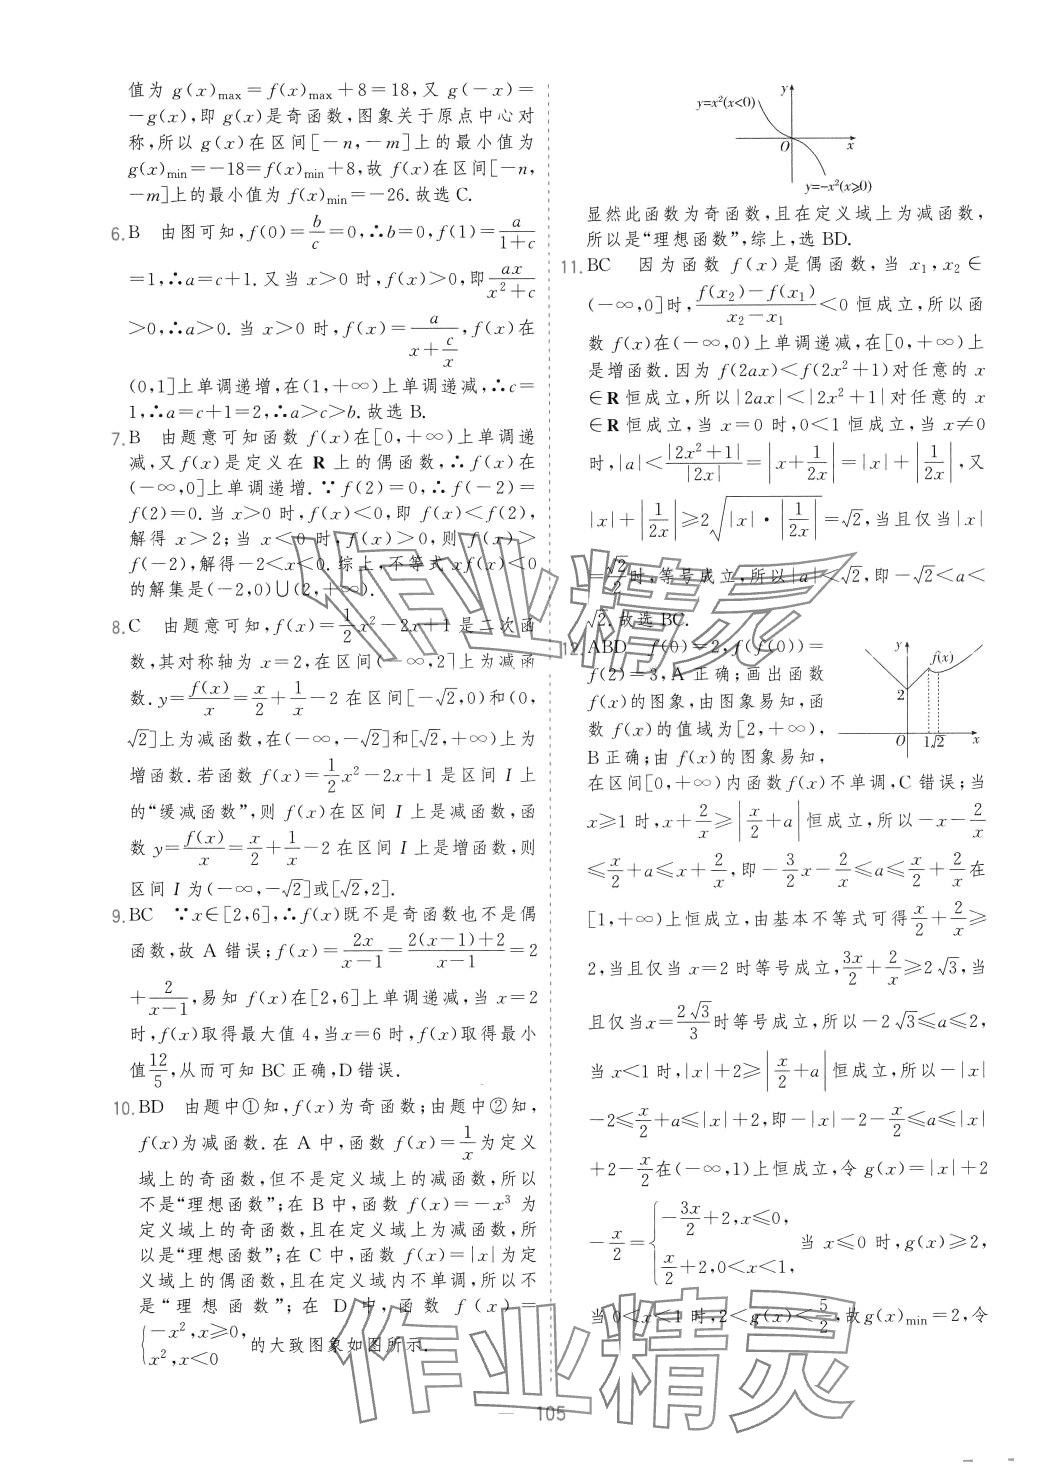 值为 g(x)max=f(x)max+8=18,又 g(-x)=
-g(x),即 g(x)是奇函数,图象关于原点中心对
称,所以 g(x)在区间[-n,-m]上的最小值为
g(x)min=-18=f(x)min+8,故 f(x)在区间[-n,
-m]上的最小值为 f(x)min=-26.故选C.
6.B 由图可知,f(0)=b/c=0,∴b=0,f(1)=a/(1+c)
=1,∴a=c+1.又当 x>0 时,f(x)>0,即ax/(x²+c)
>0,∴a>0.当 x>0 时,f(x)=a/(x+c/x),f(x)在
(0,1]上单调递增,在(1,+∞)上单调递减,∴c=
1,∴a=c+1=2,∴a>c>b.故选 B.
7.B 由题意可知函数 f(x)在[0,+∞)上单调递
减,又 f(x)是定义在 R 上的偶函数,∴f(x)在
(-∞,0]上单调递增.∵f(2)=0,∴f(-2)=
f(2)=0.当 x>0 时,f(x)<0,即 f(x)<f(2),
解得 x>2;当 x<0 时,f(x)>0,则 f(x)>
f(-2),解得-2<x<0.综上,不等式 xf(x)<0
的解集是(-2,0)∪(2,+∞).
8.C 由题意可知,f(x)=1/2x²-2x+1 是二次函
数,其对称轴为 x=2,在区间(-∞,2]上为减函
数.y=f(x)/x=x/2+1/x-2 在区间[-√2,0)和(0,
√2]上为减函数,在(-∞,-√2]和[√2,+∞)上为
增函数.若函数 f(x)=1/2x²-2x+1 是区间 I 上
的“缓减函数”,则 f(x)在区间 I 上是减函数,函
数 y=f(x)/x=x/2+1/x-2 在区间 I 上是增函数,则
区间 I 为(-∞,-√2]或[√2,2].
9.BC ∵x∈[2,6],∴f(x)既不是奇函数也不是偶
函数,故 A 错误;f(x)=2x/(x-1)=(2(x-1)+2)/(x-1)=2
+2/(x-1),易知 f(x)在[2,6]上单调递减,当 x=2
时,f(x)取得最大值 4,当x=6 时,f(x)取得最小
值12/5,从而可知 BC正确,D错误.
10.BD 由题中①知,f(x)为奇函数;由题中②知,
f(x)为减函数.在 A 中,函数 f(x)=1/x为定义
域上的奇函数,但不是定义域上的减函数,所以
不是“理想函数”;在 B 中,函数 f(x)=-x³ 为
定义域上的奇函数,且在定义域上为减函数,所
以是“理想函数”;在 C 中,函数 f(x)=|x|为定
义域上的偶函数,且在定义域内不单调,所以不
是“理想函数”;在 D 中,函数 f(x)=
{-x²,x≥0,
x²,x<0 的大致图象如图所示.
y
y=x²(x<0)
O x
y=-x²(x≥0)
显然此函数为奇函数,且在定义域上为减函数,
所以是“理想函数”,综上,选 BD.
11.BC 因为函数 f(x)是偶函数,当 x₁,x₂∈
(-∞,0]时,(f(x₂)-f(x₁))/(x₂-x₁)<0 恒成立,所以函
数 f(x)在(-∞,0)上单调递减,在[0,+∞)上
是增函数.因为 f(2ax)<f(2x²+1)对任意的 x
∈R 恒成立,所以|2ax|<|2x²+1|对任意的 x
∈R 恒成立,当 x=0 时,0<1 恒成立,当 x≠0
时,|a|<|2x²+1|/|2x|=|x+1/2x|=|x|+|1/2x|,又
|x|+|1/2x|≥2√(|x|·|1/2x|)=√2,当且仅当|x|
=√2/2时,等号成立,所以|a|<√2,即-√2<a<
√2.故选 BC.
12.ABD f(0)=2,f(f(0))=
f(2)=3,A 正确;画出函数
f(x)的图象,由图象易知,函
数 f(x)的值域为[2,+∞),
B正确;由 f(x)的图象易知,
y
f(x)
2
O 1 √2 x
在区间[0,+∞)内函数 f(x)不单调,C 错误;当
x≥1 时,x+2/x≥|x/2+a|恒成立,所以-x-2/x
≤x/2+a≤x+2/x,即-3/2x-2/x≤a≤x/2+2/x在
[1,+∞)上恒成立,由基本不等式可得x/2+2/x≥
2,当且仅当 x=2 时等号成立,3x/2+2/x≥2√3,当
且仅当x=2√3/3时等号成立,所以-2√3≤a≤2,
当 x<1 时,|x|+2≥|x/2+a|恒成立,所以-|x|
-2≤x/2+a≤|x|+2,即-|x|-2-x/2≤a≤|x|
+2-x/2在(-∞,1)上恒成立,令 g(x)=|x|+2
-x/2={-3x/2+2,x≤0,
x/2+2,0<x<1, 当 x≤0 时,g(x)≥2,
当 0<x<1 时,2<g(x)<5/2,故g(x)min=2,令
作业精灵
作业精灵
105